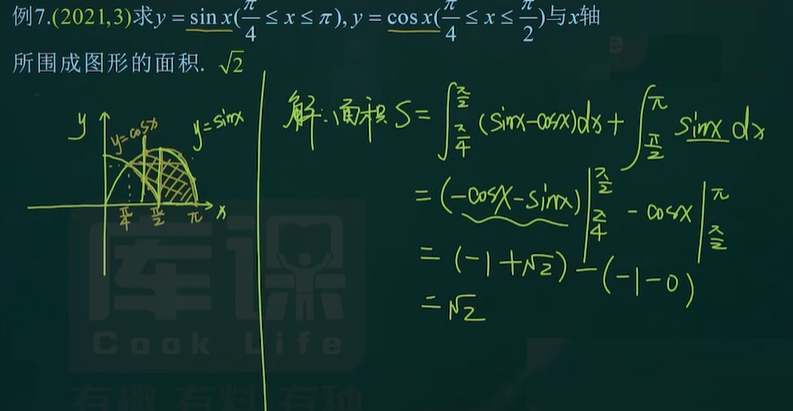 例7.(2021,3)求y = sin x(π/4 ≤ x ≤ π), y = cos x(π/4 ≤ x ≤ π/2)与x轴
所围成图形的面积. √2
y
y=cosx
y=sinx
π/4 π/2 π x
解:面积S=∫_{π/4}^{π/2}(sinx-cosx)dx+∫_{π/2}^{π} sinx dx
=(-cosx-sinx)|_{π/4}^{π/2} -cosx|_{π/2}^{π}
=(-1+√2)-(-1-0)
=√2
库课
Cook Life
有趣 有料 有种